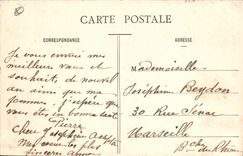 CARTE POSTALE
CORRESPONDANCE
ADRESSE
Je vous envoie mes
meilleurs vœux et
souhait, de nouvel
an ainsi que ma
femme, j'espère que
vous êtes en bonne santé
Pierre
Chère Joséphine
Mes vœux les plus
sincères
Mademoiselle
Joséphine Beydon
30 Rue Sénac
Marseille
B. du Rhône